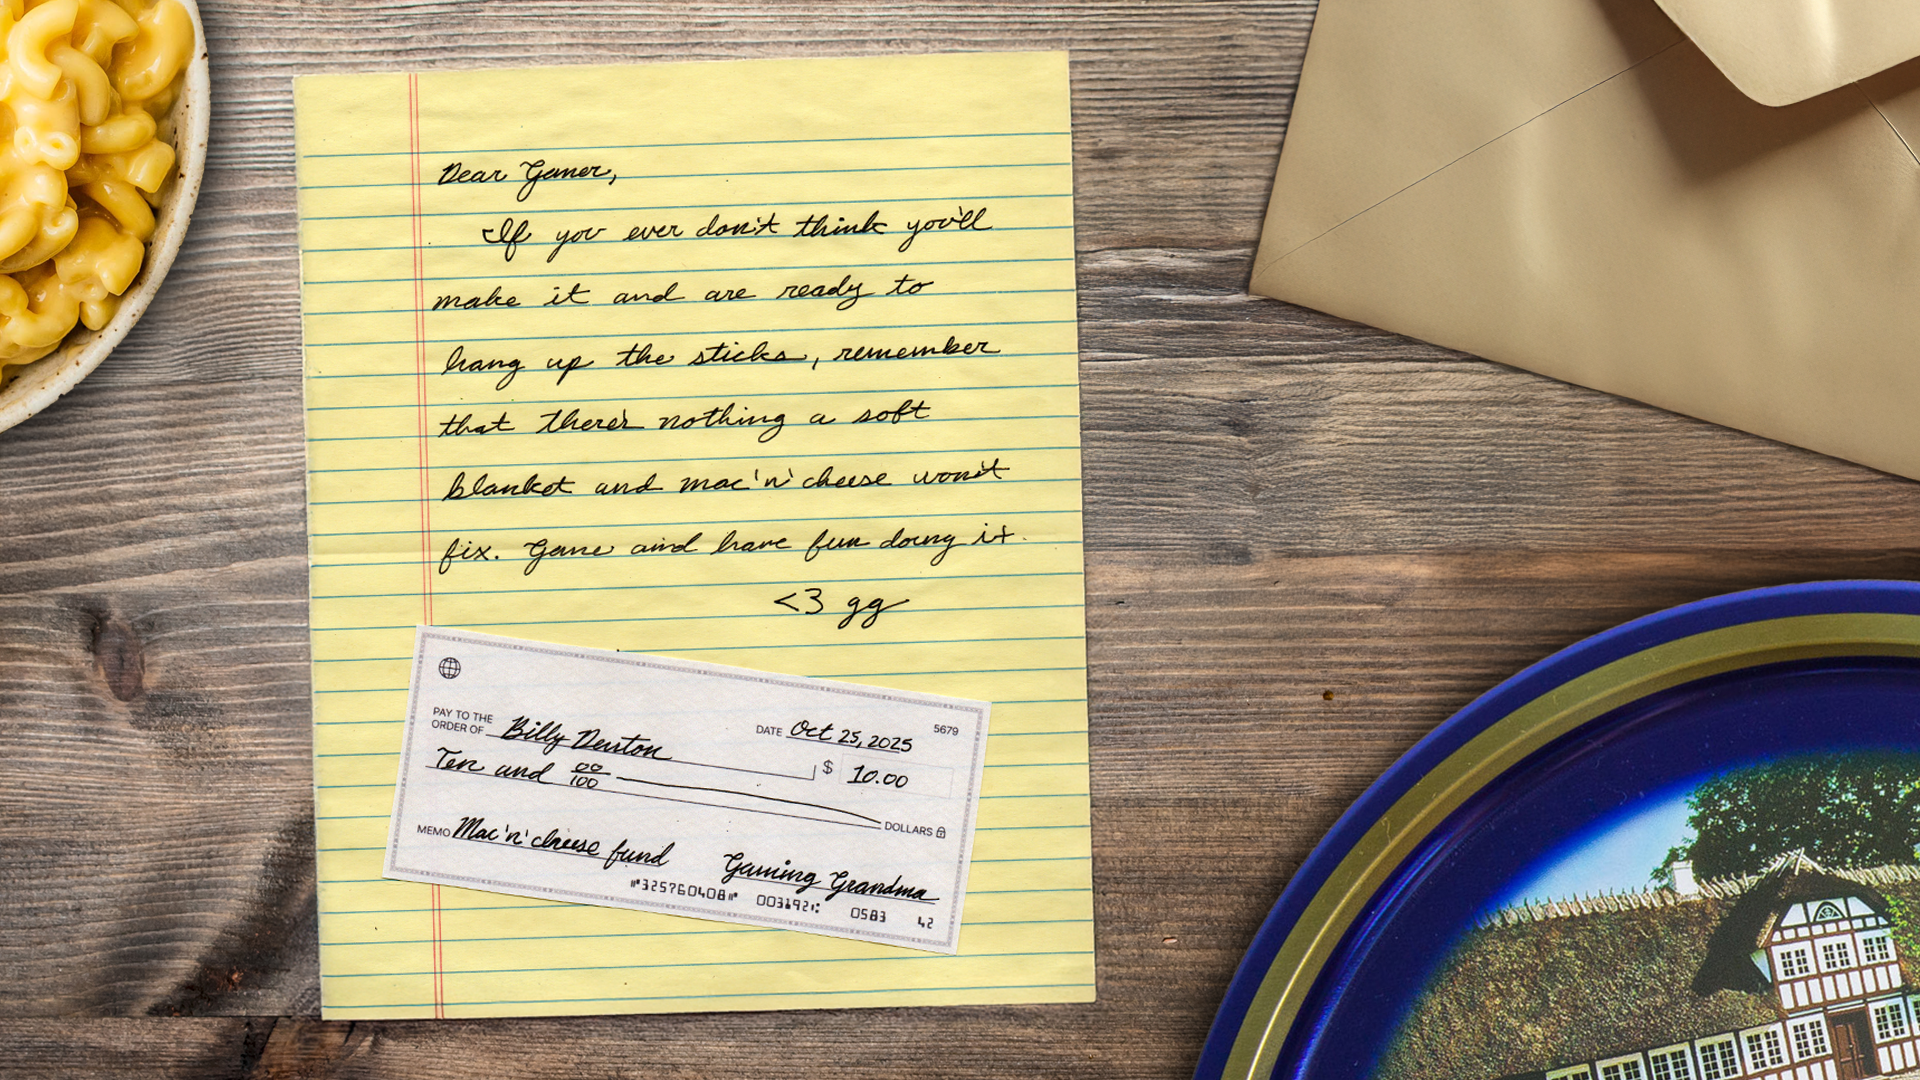 Dear Gamer,
If you ever don't think you'll
make it and are ready to
hang up the sticks, remember
that there's nothing a soft
blanket and mac'n'cheese won't
fix. Game and have fun doing it.
<3 gg
PAY TO THE
ORDER OF Billy Denton
DATE Oct 25, 2025
5679
Ten and 00/100
$ 10.00
DOLLARS
MEMO Mac'n'cheese fund
Gaming Grandma
⑈325760408⑈ 0031921⑆ 0583 42